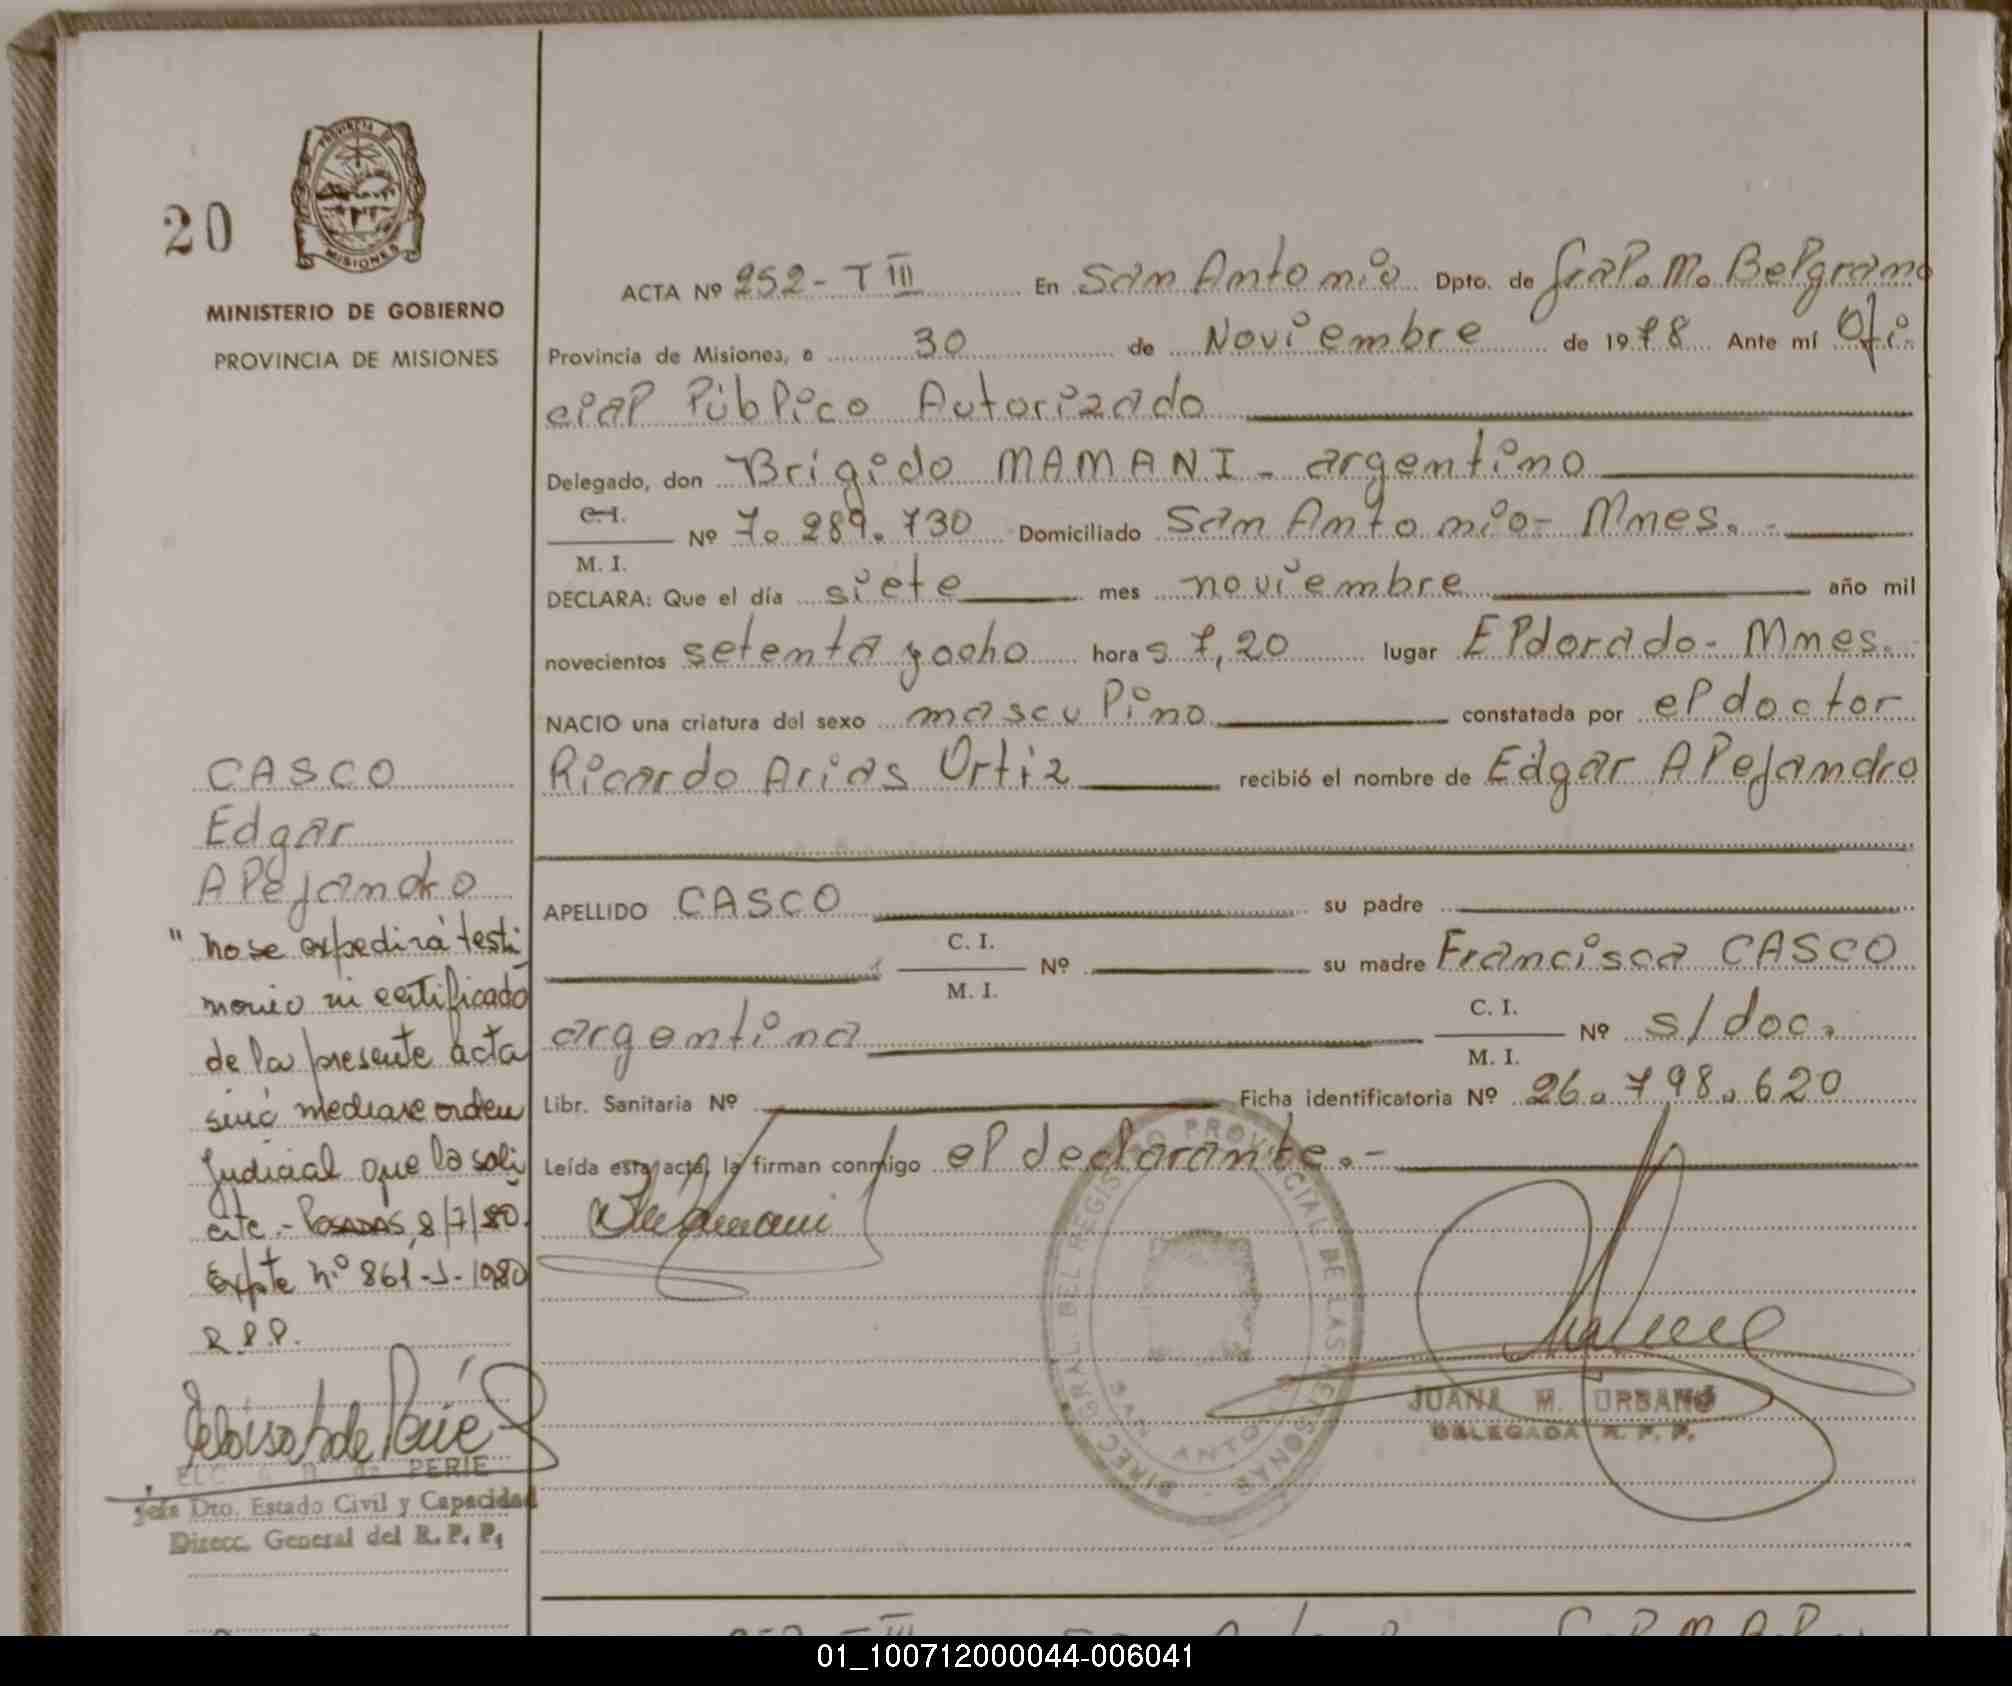 20
PROVINCIA DE
MISIONES
MINISTERIO DE GOBIERNO
PROVINCIA DE MISIONES
ACTA Nº 252 - T III En San Antonio Dpto. de Gral. M. Belgrano
Provincia de Misiones, a 30 de Noviembre de 1978 Ante mí Ofi-
cial Público Autorizado
Delegado, don Brígido MAMANI - argentino
C. I.
M. I.
Nº 7.289.730 Domiciliado San Antonio - Mnes. -
DECLARA: Que el día siete mes noviembre año mil
novecientos setenta y ocho horas 7,20 lugar Eldorado - Mnes.
NACIO una criatura del sexo masculino constatada por el doctor
Ricardo Arias Ortiz recibió el nombre de Edgar Alejandro
APELLIDO CASCO su padre
C. I.
M. I.
Nº su madre Francisca CASCO
argentina
C. I.
M. I.
Nº s/doc.
Libr. Sanitaria Nº Ficha identificatoria Nº 26.798.620
Leída esta acta, la firman conmigo el declarante. -
CASCO
Edgar
Alejandro
" No se expedirá testi
monio ni certificado
de la presente acta
sinó mediante orden
Judicial que lo soli
cite. - POSADAS, 8/7/80.
Expte Nº 861-J-1980
R.P.P.
PERIE
Jefa Dto. Estado Civil y Capacidad
Direcc. General del R. P. P.
DIREC. GRAL. DEL REGISTRO PROVINCIAL DE LAS PERSONAS
SAN ANTONIO
JUANA M. URBANO
DELEGADA R. P. P.
01_100712000044-006041